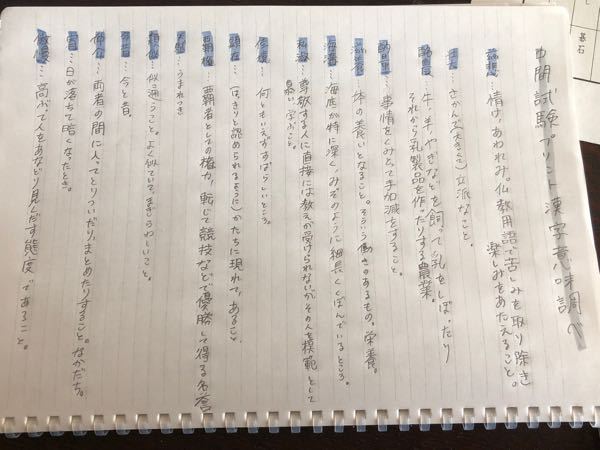 中間試験プリント 漢字意味調べ
慈悲…情け、あわれみ。仏教用語で苦しみを取り除き
楽しみをあたえること。
…さかんで(大きくて)立派なこと。
酪農…牛、羊、やぎなどを飼って乳をしぼったり
それから乳製品を作ったりする農業。
酌量…事情をくみとって手加減をすること。
滋養…体の養いとなること。そういう働きのあるもの。栄養。
海溝…海底が特に深く、みぞのように細長くくぼんでいるところ。
私淑…尊敬する人に直接には教えが受けられないが、その人を模範として
慕い、学ぶこと。
何ともいえずすばらしいところ。
顕在…はっきりと認められるように)かたちに現れて、あること
覇権…覇者としての権力、転じて競技などで優勝して得る名誉
…うまれつき
類似…似通うこと。よく似ていて、まぎらわしいこと。
…今と昔。
仲介…両者の間に入ってとりついだり、まとめたりすること。なかだち。
宵…日が落ちて暗くなったとき。
傲慢…高ぶって人をあなどり見くだす態度であること。
碁石